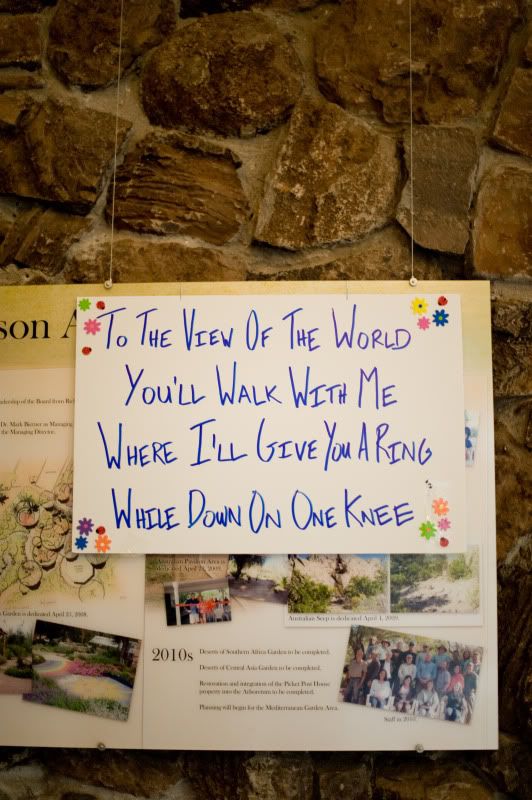 To The View Of The World
You'll Walk With Me
Where I'll Give You A Ring
While Down On One Knee
son A
Dr. Mark Bierner as Managing
the Managing Director.
Australian Pavilion Area is
dedicated April 23, 2009.
Garden is dedicated April 23, 2008.
Australian Seep is dedicated April 4, 2009.
2010s
Deserts of Southern Africa Garden to be completed.
Deserts of Central Asia Garden to be completed.
Restoration and integration of the Picket Post House
property into the Arboretum to be completed.
Planning will begin for the Mediterranean Garden Area.
Staff in